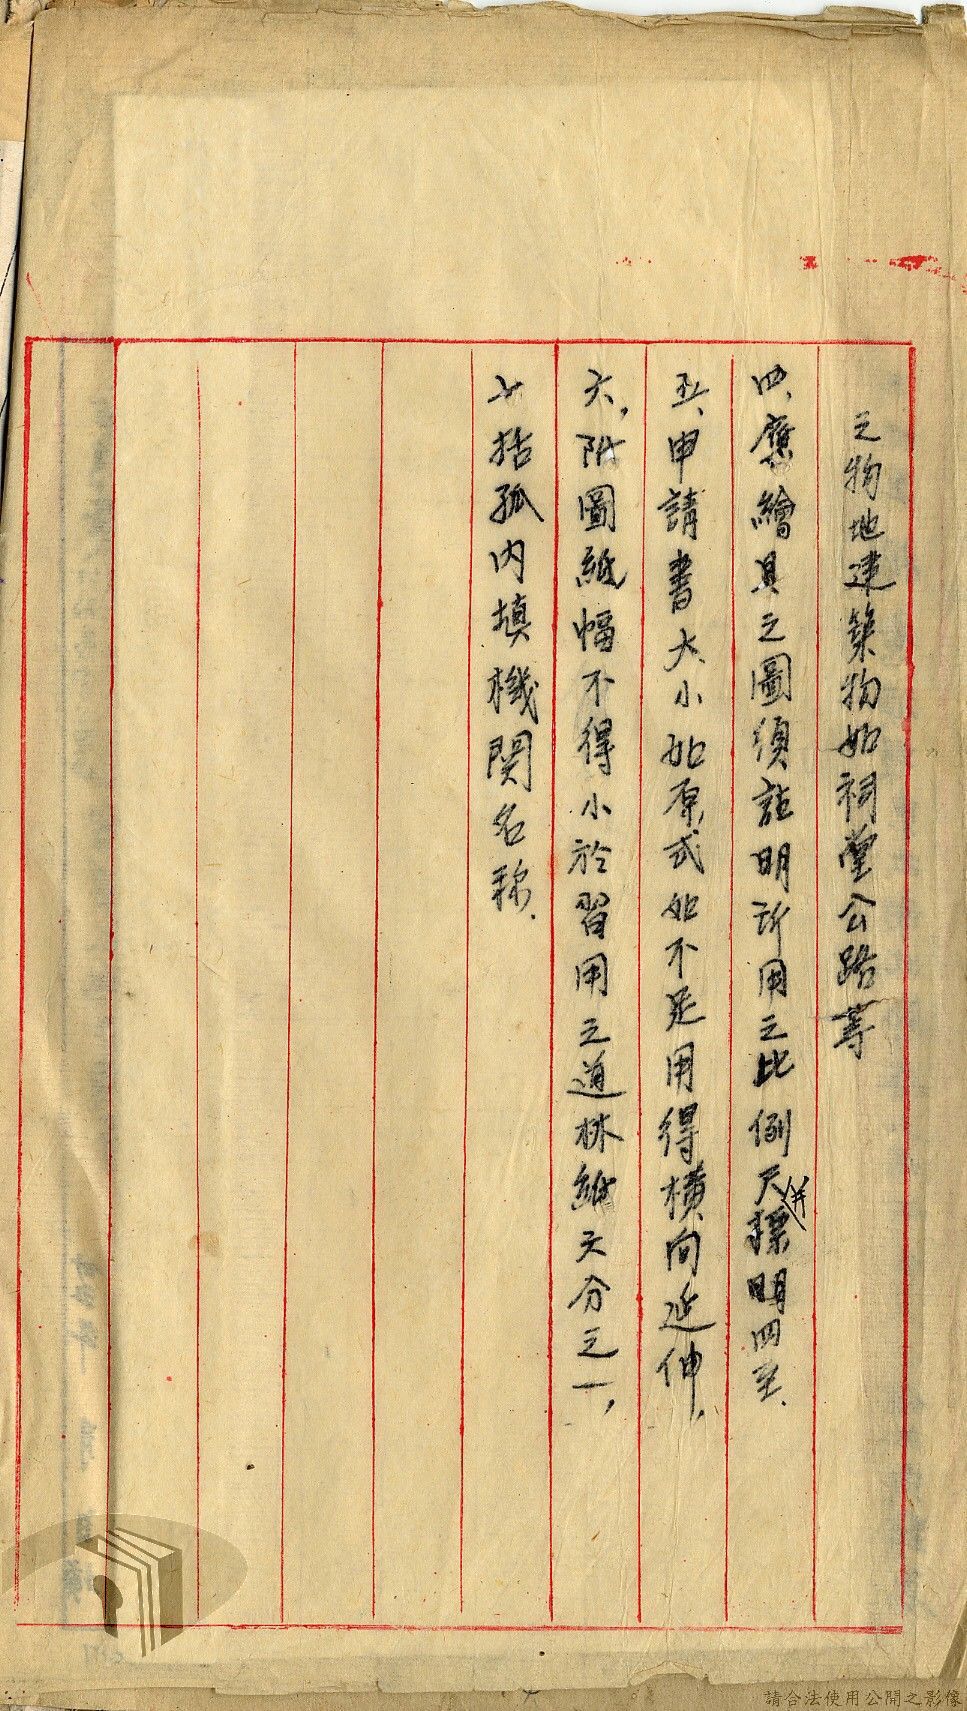 之物地建築物如祠堂公路等
四、應繪具之圖須註明所用之比例尺并標明四至、
五、申請書大小如原式如不足用得橫向延伸，
六，附圖紙幅不得小於習用之道林紙天分之一，
七括弧内填機関名称、
請合法使用公開之影像